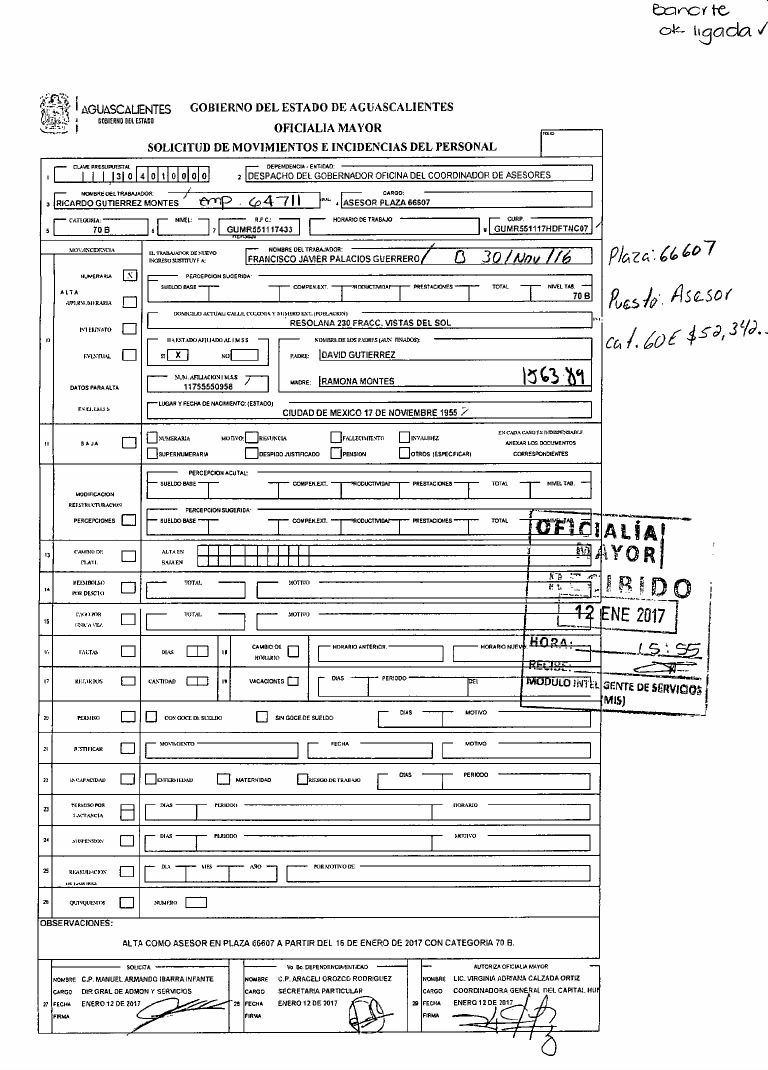 Banorte
ok ligada ✓
AGUASCALIENTES
GOBIERNO DEL ESTADO
GOBIERNO DEL ESTADO DE AGUASCALIENTES
OFICIALIA MAYOR
SOLICITUD DE MOVIMIENTOS E INCIDENCIAS DEL PERSONAL
FOLIO
CLAVE PRESUPUESTAL
DEPENDENCIA - ENTIDAD:
1 1 1 3 0 4 0 1 0 0 0 0
2 DESPACHO DEL GOBERNADOR OFICINA DEL COORDINADOR DE ASESORES
NOMBRE DEL TRABAJADOR:
CARGO:
3 RICARDO GUTIERREZ MONTES emp. 64711
4 ASESOR PLAZA 66607
CATEGORIA: NIVEL: R.F.C.: HORARIO DE TRABAJO CURP.
5 70 B 6 7 GUMR551117433 GUMR551117HDFTNC07
MOV.INCIDENCIA
EL TRABAJADOR DE NUEVO INGRESO SUSTITUYE A:
NOMBRE DEL TRABAJADOR:
FRANCISCO JAVIER PALACIOS GUERRERO / B 30/Nov/16
Plaza: 66607
Puesto: Asesor
cat. 60E $52,342..
NUMERARIA X
PERCEPCION SUGERIDA:
SUELDO BASE COMPEN.EXT. PRODUCTIVIDAD PRESTACIONES TOTAL NIVEL TAB.
70 B
ALTA
SUPERNUMERARIA
DOMICILIO ACTUAL: CALLE, COLONIA Y NUMERO EXT. (POBLACION)
RESOLANA 230 FRACC. VISTAS DEL SOL
INTERINATO
10
HA ESTADO AFILIADO AL I M S S
NOMBRE DE LOS PADRES (AUN FINADOS):
EVENTUAL
SI X NO
PADRE: DAVID GUTIERREZ
NUM. AFILIACION I M S S
DATOS PARA ALTA
11755550958
MADRE: RAMONA MONTES 1563.89
EN EL I M S S
LUGAR Y FECHA DE NACIMIENTO: (ESTADO)
CIUDAD DE MEXICO 17 DE NOVIEMBRE 1955
11 BAJA
NUMERARIA MOTIVO: RENUNCIA FALLECIMIENTO INVALIDEZ
SUPERNUMERARIA DESPIDO JUSTIFICADO PENSION OTROS (ESPECIFICAR)
EN CADA CASO ES INDISPENSABLE
ANEXAR LOS DOCUMENTOS
CORRESPONDIENTES
PERCEPCION ACUTAL:
SUELDO BASE COMPEN.EXT. PRODUCTIVIDAD PRESTACIONES TOTAL NIVEL TAB.
MODIFICACION
RESTRUCTURACION
PERCEPCIONES
PERCEPCION SUGERIDA:
SUELDO BASE COMPEN.EXT. PRODUCTIVIDAD PRESTACIONES TOTAL
OFICIALÍA
MAYOR
RECIBIDO
12 ENE 2017
HORA: 15:55
RECIBE:
MODULO INTELIGENTE DE SERVICIOS
(MIS)
13 CAMBIO DE CLAVE
ALTA EN
BAJA EN
14 REEMBOLSO POR DESCTO TOTAL MOTIVO
15 PAGO POR UNICA VEZ TOTAL MOTIVO
16 FALTAS DIAS 18 CAMBIO DE HORARIO HORARIO ANTERIOR. HORARIO NUEVO
17 RETARDOS CANTIDAD 19 VACACIONES DIAS PERIODO DEL
20 PERMISO CON GOCE DE SUELDO SIN GOCE DE SUELDO DIAS MOTIVO
21 JUSTIFICAR MOVIMIENTO FECHA MOTIVO
22 INCAPACIDAD ENFERMEDAD MATERNIDAD RIESGO DE TRABAJO DIAS PERIODO
23 PERMISO POR LACTANCIA DIAS PERIODO HORARIO
24 SUSPENSION DIAS PERIODO MOTIVO
25 REANUDACION DE LABORES DIA MES AÑO POR MOTIVO DE
26 QUINQUENIOS NUMERO
OBSERVACIONES:
ALTA COMO ASESOR EN PLAZA 66607 A PARTIR DEL 16 DE ENERO DE 2017 CON CATEGORIA 70 B.
SOLICITA
NOMBRE C.P. MANUEL ARMANDO IBARRA INFANTE
CARGO DIR GRAL DE ADMON Y SERVICIOS
27 FECHA ENERO 12 DE 2017
FIRMA
Vo Bo DEPENDENCIA/ENTIDAD
NOMBRE C.P. ARACELI OROZCO RODRIGUEZ
CARGO SECRETARIA PARTICULAR
28 FECHA ENERO 12 DE 2017
FIRMA
AUTORIZA OFICIALIA MAYOR
NOMBRE LIC. VIRGINIA ADRIANA CALZADA ORTIZ
CARGO COORDINADORA GENERAL DEL CAPITAL HU
29 FECHA ENERO 12 DE 2017
FIRMA